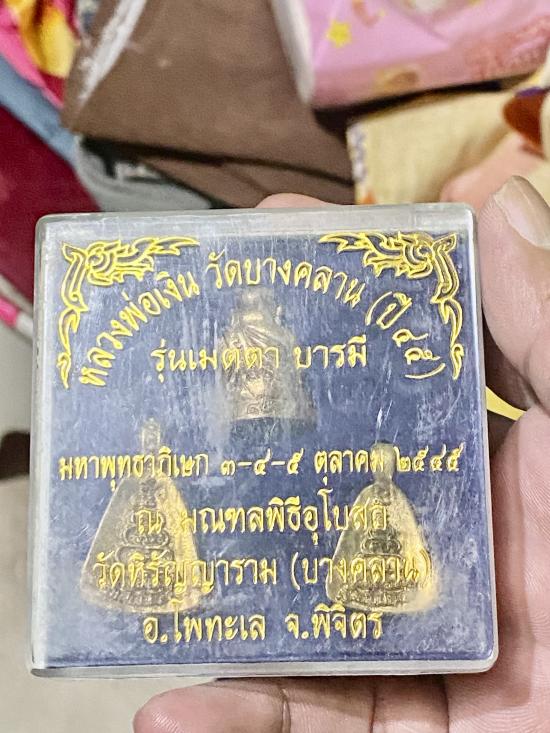 หลวงพ่อเงิน วัดบางคลาน (ปี ๔๕)
รุ่นเมตตา บารมี
มหาพุทธาภิเษก ๓-๔-๕ ตุลาคม ๒๕๔๕
ณ มณฑลพิธีอุโบสถ
วัดหิรัญญาราม (บางคลาน)
อ.โพทะเล จ.พิจิตร